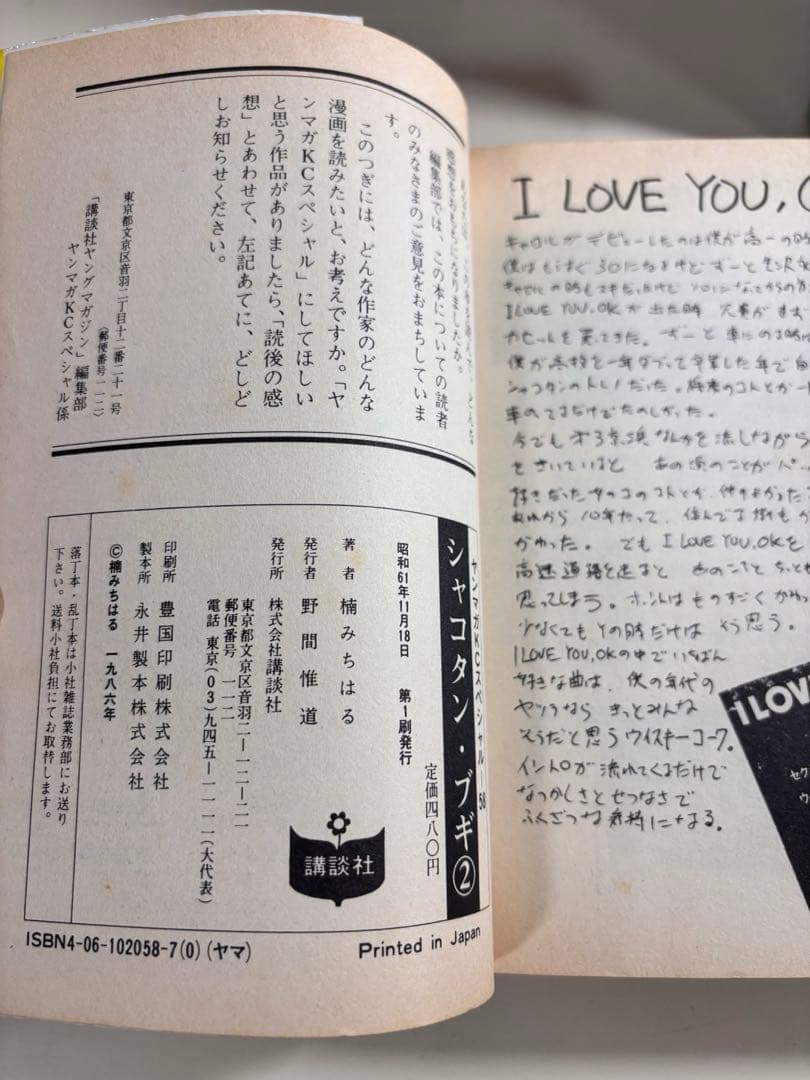 感想をおもちになりましたか。
編集部では、この本についての読者
のみなさまのご意見をおまちしていま
す。
このつぎには、どんな作家のどんな
漫画を読みたいと、お考えですか。「ヤ
ンマガKCスペシャル」にしてほしい
と思う作品がありましたら、「読後の感
想」とあわせて、左記あてに、どしど
しお知らせください。
東京都文京区音羽二丁目十二番二十一号
(郵便番号一一二)
「講談社ヤングマガジン」編集部
ヤンマガKCスペシャル係
ヤンマガKCスペシャル—58
シャコタン・ブギ②
定価四八〇円
昭和61年11月18日 第1刷発行
著者 楠みちはる
発行者 野間惟道
発行所 株式会社講談社
東京都文京区音羽二—一二—二一
郵便番号 一一二
電話 東京(03)九四五—一一一一(大代表)
印刷所 豊国印刷株式会社
製本所 永井製本株式会社
©楠みちはる 一九八六年
落丁本・乱丁本は小社雑誌業務部にお送り
下さい。送料小社負担にてお取替します。
講談社
ISBN4-06-102058-7(0)(ヤマ)
Printed in Japan
I LOVE YOU,
キャロルがデビューしたのは僕が高一の時
僕はもうすぐ30になるけどずーと
I LOVE YOU,OKが出た時
カセットを買ってきた。ずーと車に
僕が高校を一年ダブって卒業した年で
シャコタンのトレノだった。将来のコトとか
車のってるだけでたのしかった。
今でも第3京浜なんかを流しながら
をきいていると あの頃のことが
好きだったオンナのコのコトとか、仲のよかった
あれから10年たって、住んでる街も
かわった。でもI LOVE YOU,OKを
高速道路を走ると あのころと
思ってしまう。ホントはものすごくかわって
少なくてもその時だけは そう思う。
I LOVE YOU,OKの中でいちばん
好きな曲は、僕の年代の
ヤツラなら きっとみんな
そうだと思うウイスキーコーク。
イントロが流れてくるだけで
なつかしさとせつなさで
ふくざつな気持になる。
I LOV